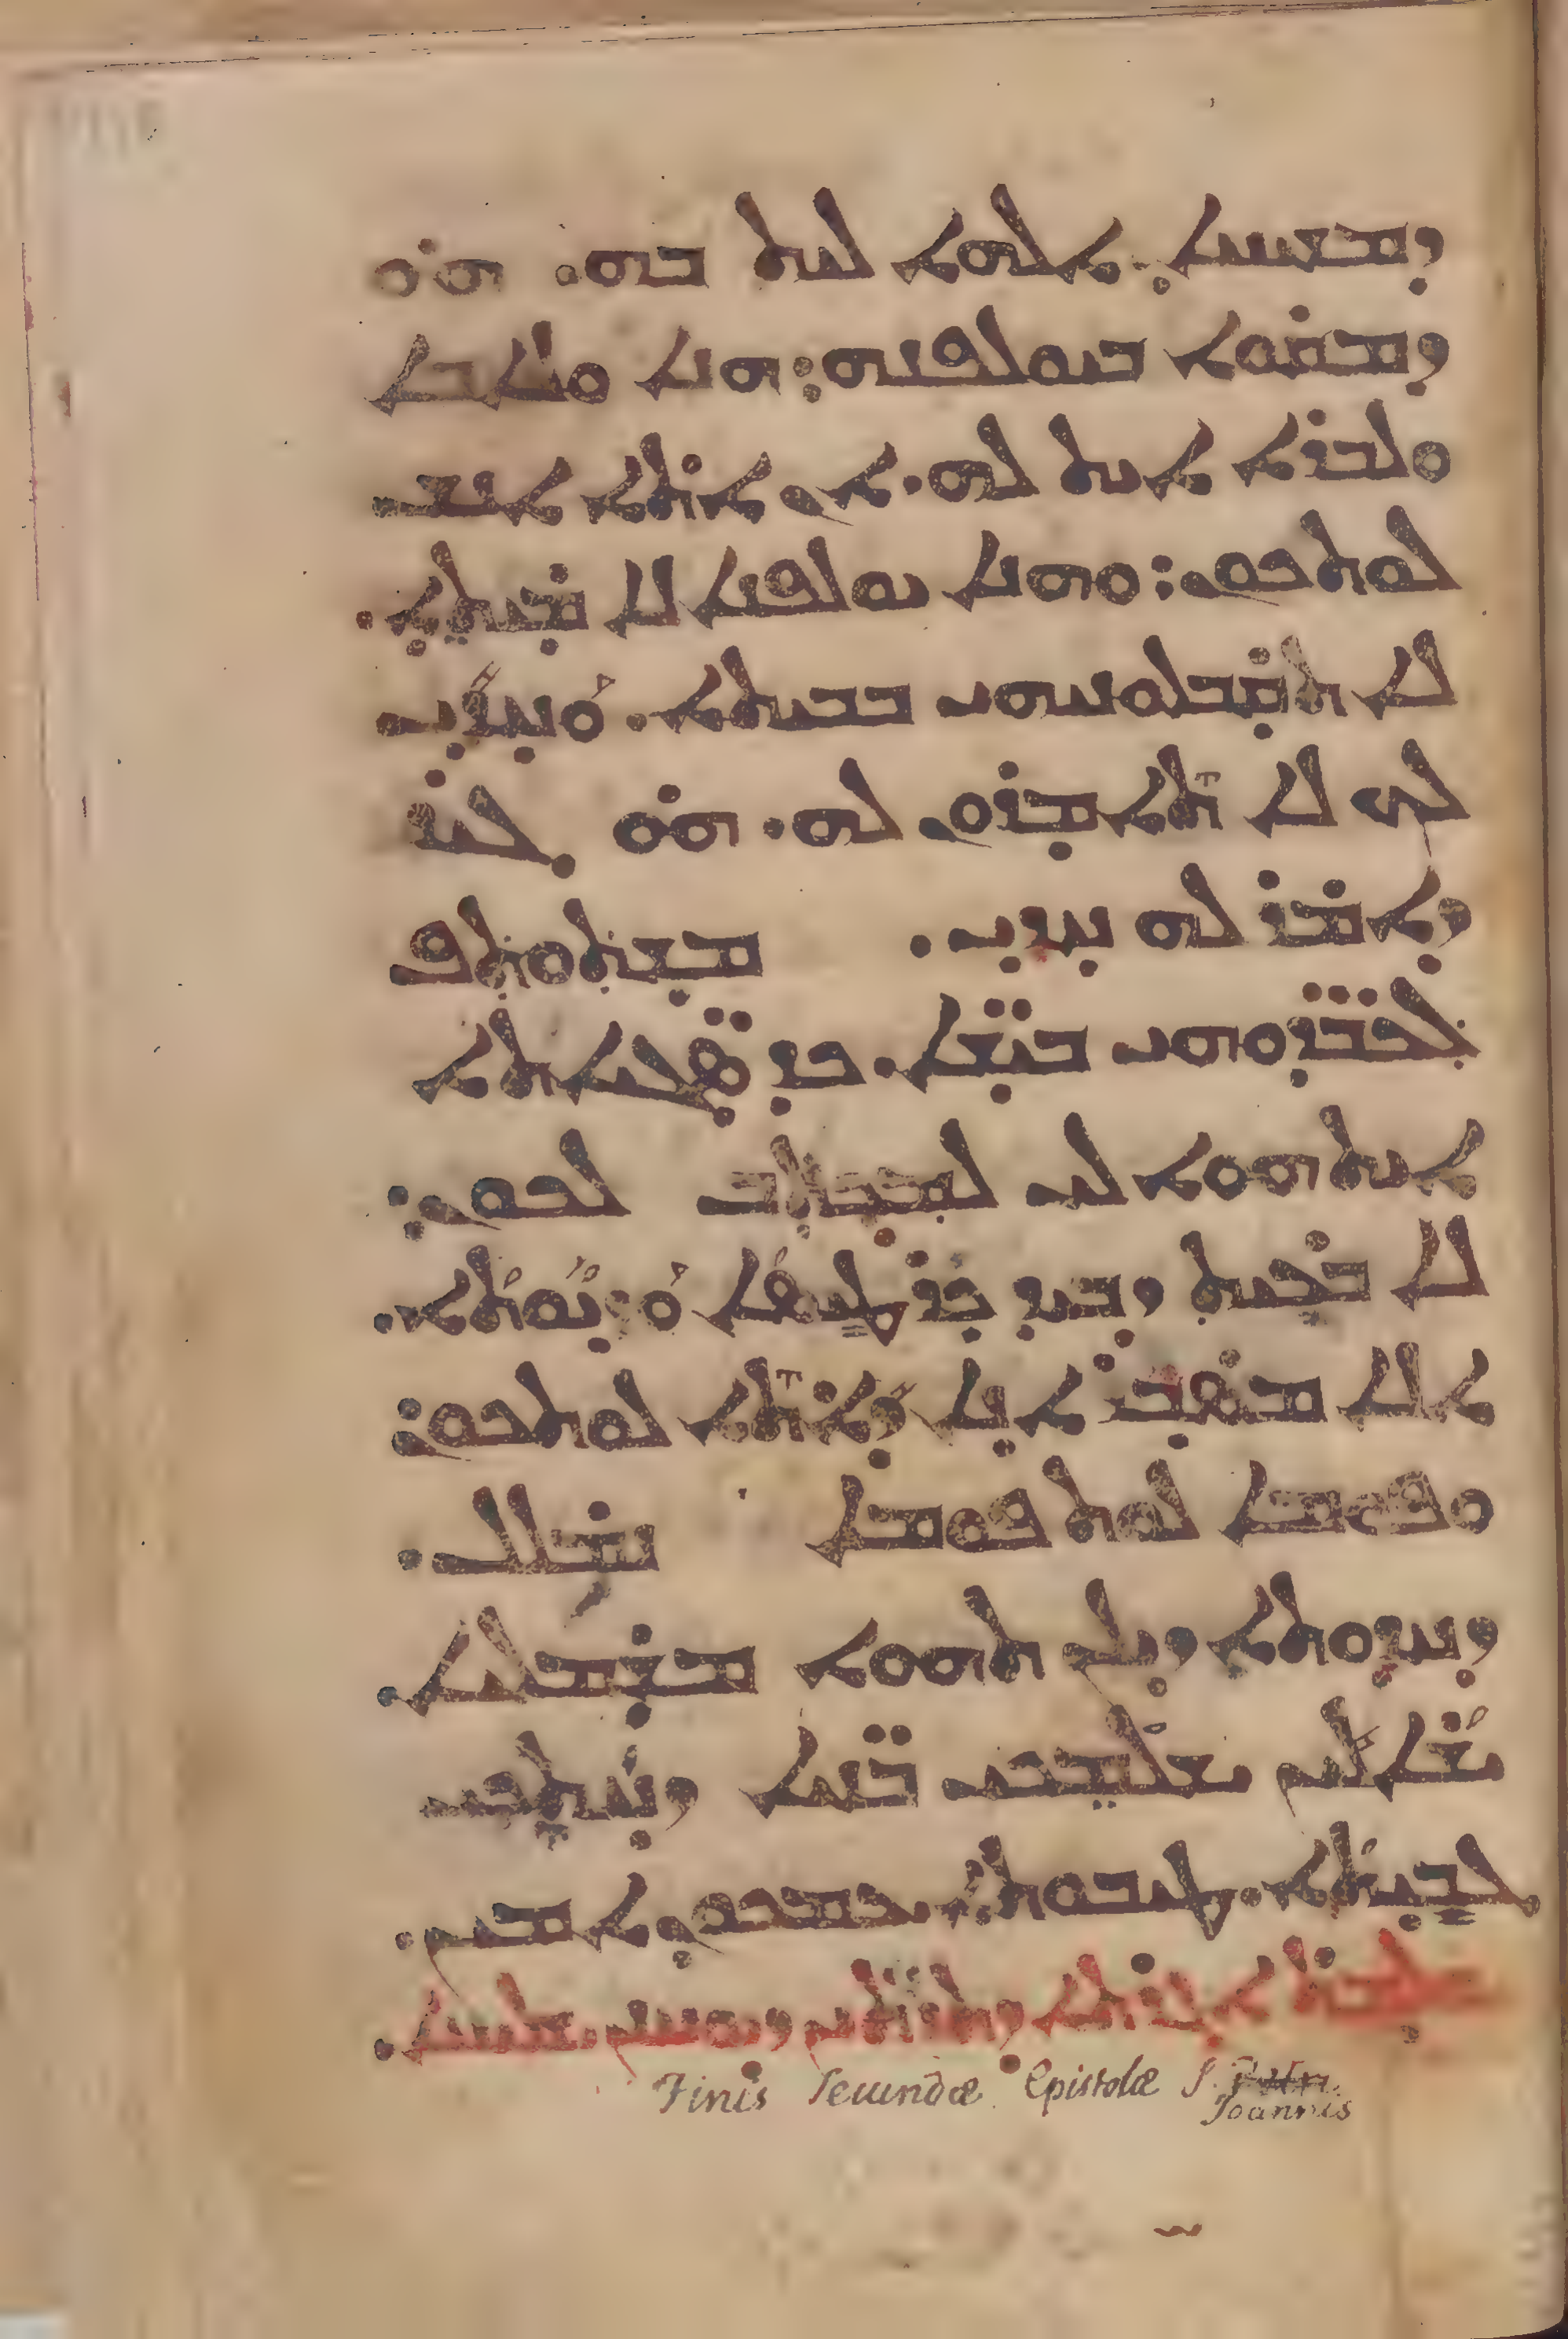 ܕܡܫܝܚܐ. ܐܠܗܐ ܠܝܬ ܒܗ. ܗܘ
ܕܡܩܘܐ ܒܝܘܠܦܢܗ: ܗܢܐ ܘܠܐܒܐ
ܘܠܒܪܐ ܐܝܬ ܠܗ. ܐܢ ܐܬܐ ܐܢܫ
ܠܘܬܟܘܢ: ܘܗܢܐ ܝܘܠܦܢܐ ܠܐ ܡܝܬܐ.
ܠܐ ܬܩܒܠܘܢܝܗܝ ܒܒܝܬܐ. ܘܚܕܝ
ܠܟ ܠܐ ܬܐܡܪܘܢ ܠܗ. ܗܘ ܓܝܪ
ܕܐܡܪ ܠܗ ܚܕܝ. ܡܫܬܘܬܦ
ܠܥܒܕܘܗܝ ܒܝܫܐ. ܟܕ ܣܓܝܐܬܐ
ܐܝܬ ܗܘܐ ܠܝ ܠܡܟܬܒ ܠܟܘܢ:
ܠܐ ܨܒܝܬ ܕܒܝܕ ܟܪܛܝܣܐ ܘܕܝܘܬܐ.
ܐܠܐ ܡܣܒܪ ܐܢܐ ܕܐܬܐ ܠܘܬܟܘܢ:
ܘܦܘܡܐ ܠܘܬ ܦܘܡܐ ܢܡܠܠ.
ܕܚܕܘܬܐ ܕܝܠܢ ܬܗܘܐ ܡܫܡܠܝܐ.
ܫܐܠܝܢ ܫܠܡܟܝ ܒܢܝܐ ܕܚܬܟܝ
ܓܒܝܬܐ. ܛܝܒܘܬܐ ܥܡܟܘܢ ܐܡܝܢ.
ܫܠܡܬ ܐܓܪܬܐ ܕܬܪܬܝܢ ܕܝܘܚܢܢ ܫܠܝܚܐ.
Finis secundæ Epistolæ S. Joannis